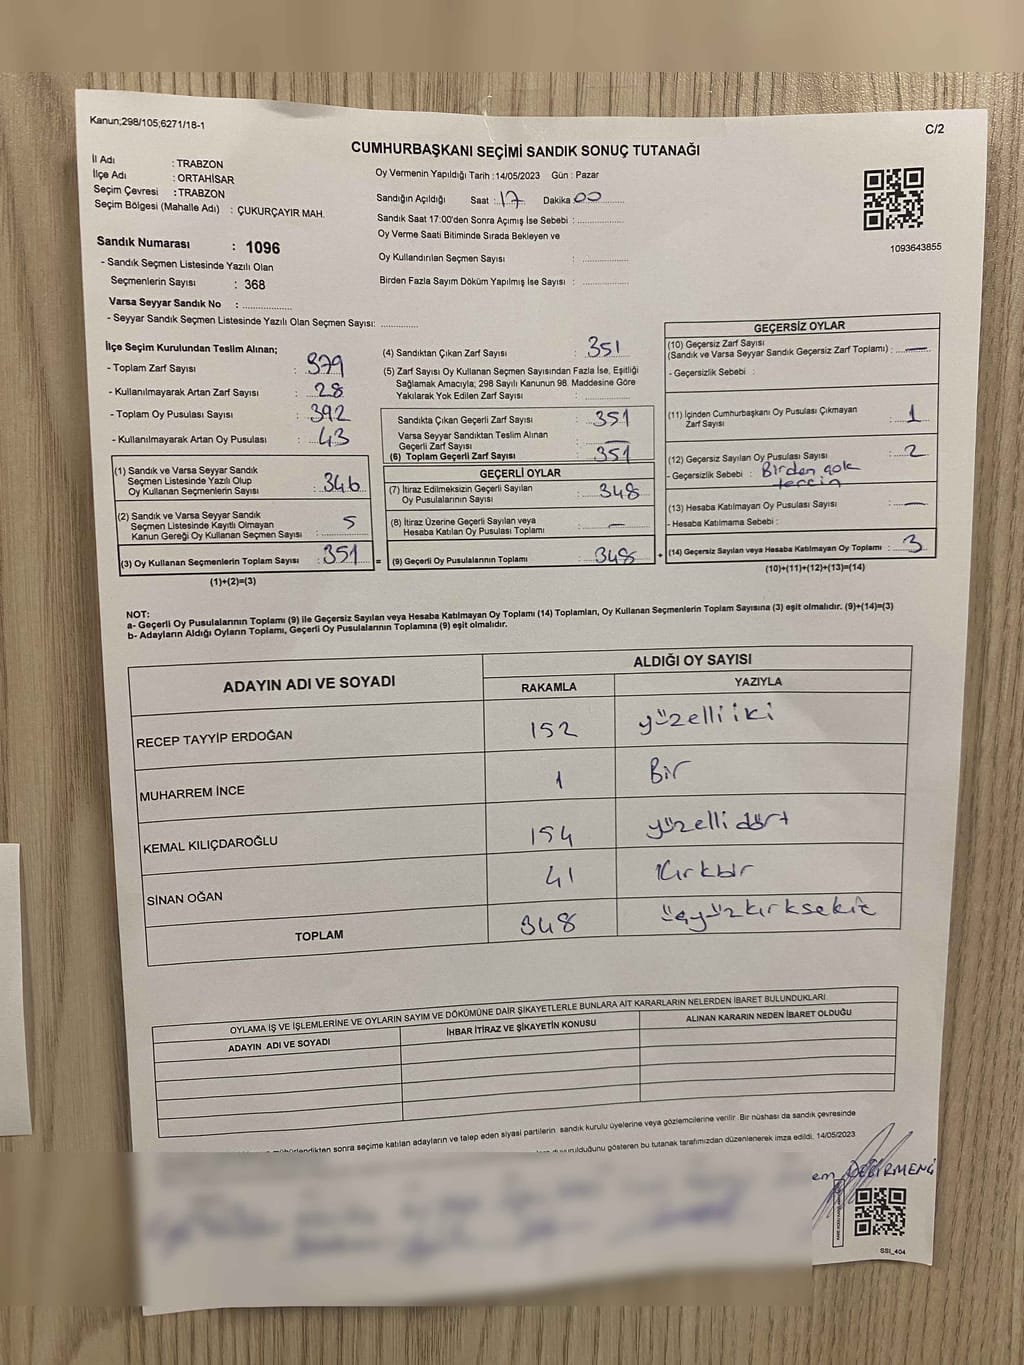 Kanun;298/105;6271/18-1
C/2
CUMHURBAŞKANI SEÇİMİ SANDIK SONUÇ TUTANAĞI
İl Adı : TRABZON
İlçe Adı : ORTAHİSAR
Seçim Çevresi : TRABZON
Seçim Bölgesi (Mahalle Adı) : ÇUKURÇAYIR MAH.
Sandık Numarası : 1096
- Sandık Seçmen Listesinde Yazılı Olan
Seçmenlerin Sayısı : 368
Varsa Seyyar Sandık No :
- Seyyar Sandık Seçmen Listesinde Yazılı Olan Seçmen Sayısı:
Oy Vermenin Yapıldığı Tarih : 14/05/2023 Gün : Pazar
Sandığın Açıldığı Saat : 17 Dakika 00
Sandık Saat 17:00'den Sonra Açımış İse Sebebi :
Oy Verme Saati Bitiminde Sırada Bekleyen ve
Oy Kullandırılan Seçmen Sayısı :
Birden Fazla Sayım Döküm Yapılmış İse Sayısı :
1093643855
İlçe Seçim Kurulundan Teslim Alınan;
- Toplam Zarf Sayısı : 379
- Kullanılmayarak Artan Zarf Sayısı : 28
- Toplam Oy Pusulası Sayısı : 392
- Kullanılmayarak Artan Oy Pusulası : 43
(1) Sandık ve Varsa Seyyar Sandık
Seçmen Listesinde Yazılı Olup
Oy Kullanan Seçmenlerin Sayısı : 346
(2) Sandık ve Varsa Seyyar Sandık
Seçmen Listesinde Kayıtlı Olmayan
Kanun Gereği Oy Kullanan Seçmen Sayısı : 5
(3) Oy Kullanan Seçmenlerin Toplam Sayısı : 351
(1)+(2)=(3)
(4) Sandıktan Çıkan Zarf Sayısı : 351
(5) Zarf Sayısı Oy Kullanan Seçmen Sayısından Fazla İse, Eşitliği
Sağlamak Amacıyla; 298 Sayılı Kanunun 98. Maddesine Göre
Yakılarak Yok Edilen Zarf Sayısı :
Sandıkta Çıkan Geçerli Zarf Sayısı : 351
Varsa Seyyar Sandıktan Teslim Alınan
Geçerli Zarf Sayısı : —
(6) Toplam Geçerli Zarf Sayısı : 351
GEÇERLİ OYLAR
(7) İtiraz Edilmeksizin Geçerli Sayılan
Oy Pusulalarının Sayısı : 348
(8) İtiraz Üzerine Geçerli Sayılan veya
Hesaba Katılan Oy Pusulası Toplamı : —
= (9) Geçerli Oy Pusulalarının Toplamı : 348
GEÇERSİZ OYLAR
(10) Geçersiz Zarf Sayısı
(Sandık ve Varsa Seyyar Sandık Geçersiz Zarf Toplamı) : —
- Geçersizlik Sebebi :
(11) İçinden Cumhurbaşkanı Oy Pusulası Çıkmayan
Zarf Sayısı : 1
(12) Geçersiz Sayılan Oy Pusulası Sayısı : 2
- Geçersizlik Sebebi : Birden çok
tercih
(13) Hesaba Katılmayan Oy Pusulası Sayısı : —
- Hesaba Katılmama Sebebi :
+ (14) Geçersiz Sayılan veya Hesaba Katılmayan Oy Toplamı : 3
(10)+(11)+(12)+(13)=(14)
NOT:
a- Geçerli Oy Pusulalarının Toplamı (9) ile Geçersiz Sayılan veya Hesaba Katılmayan Oy Toplamı (14) Toplamları, Oy Kullanan Seçmenlerin Toplam Sayısına (3) eşit olmalıdır. (9)+(14)=(3)
b- Adayların Aldığı Oyların Toplamı, Geçerli Oy Pusulalarının Toplamına (9) eşit olmalıdır.
ADAYIN ADI VE SOYADI
ALDIĞI OY SAYISI
RAKAMLA YAZIYLA
RECEP TAYYİP ERDOĞAN 152 yüzelli iki
MUHARREM İNCE 1 Bir
KEMAL KILIÇDAROĞLU 154 yüzelli dört
SİNAN OĞAN 41 Kırkbir
TOPLAM 348 üçyüzkırksekiz
OYLAMA İŞ VE İŞLEMLERİNE VE OYLARIN SAYIM VE DÖKÜMÜNE DAİR ŞİKAYETLERLE BUNLARA AİT KARARLARIN NELERDEN İBARET BULUNDUKLARI
ADAYIN ADI VE SOYADI İHBAR İTİRAZ VE ŞİKAYETİN KONUSU ALINAN KARARIN NEDEN İBARET OLDUĞU
sonra seçime katılan adayların ve talep eden siyasi partilerin sandık kurulu üyelerine veya gözlemcilerine verilir. Bir nüshası da sandık çevresinde
duyurulduğunu gösteren bu tutanak tarafımızdan düzenlenerek imza edildi. 14/05/2023
em DEĞİRMENCİ
SSİ_404